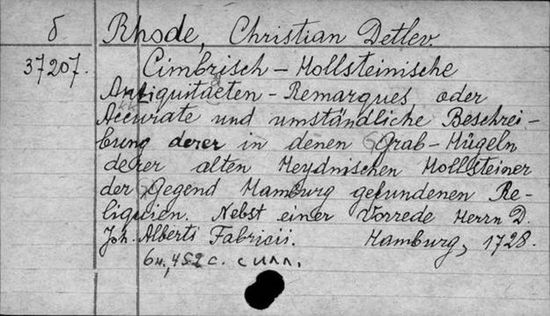 б Rhode, Christian Detlev.
37207. Cimbrisch-Hollsteinische
Antiquitaeten-Remarques oder
Accurate und umständliche Beschrei-
bung derer in denen Grab-Hügeln
derer alten Heydnischen Hollsteiner
der Gegend Hamburg gefundenen Re-
liquien. Nebst einer Vorrede Herrn D.
Joh. Alberti Fabricii. Hamburg, 1728.
6н., 452 с. с илл.